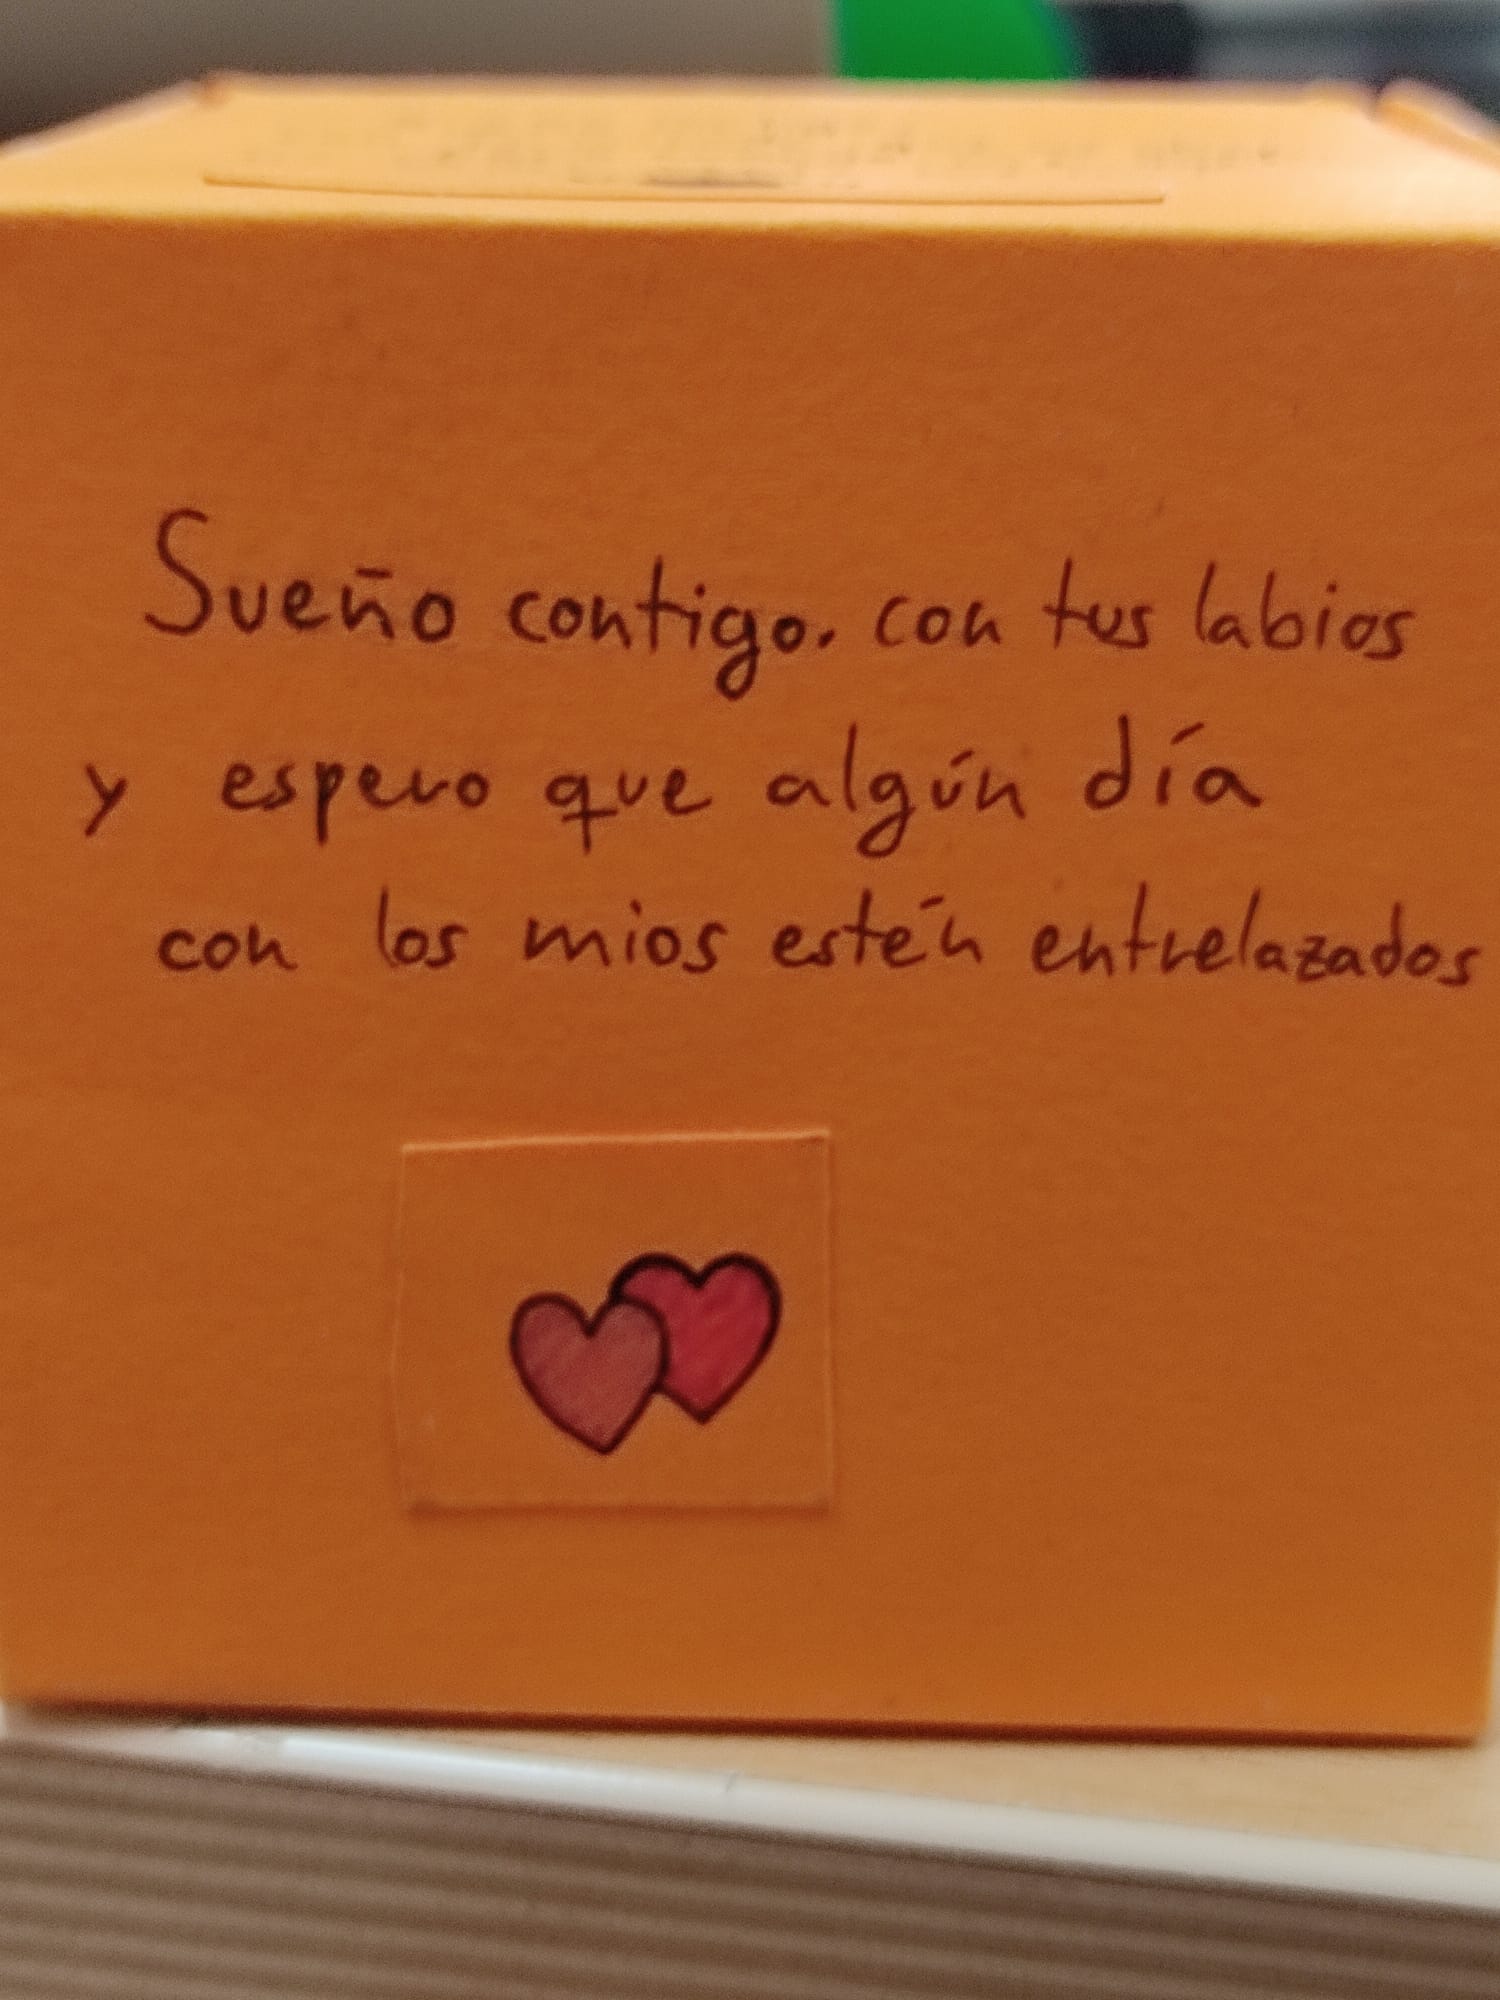 Sueño contigo. con tus labios
y espero que algún día
con los mios estén entrelazados